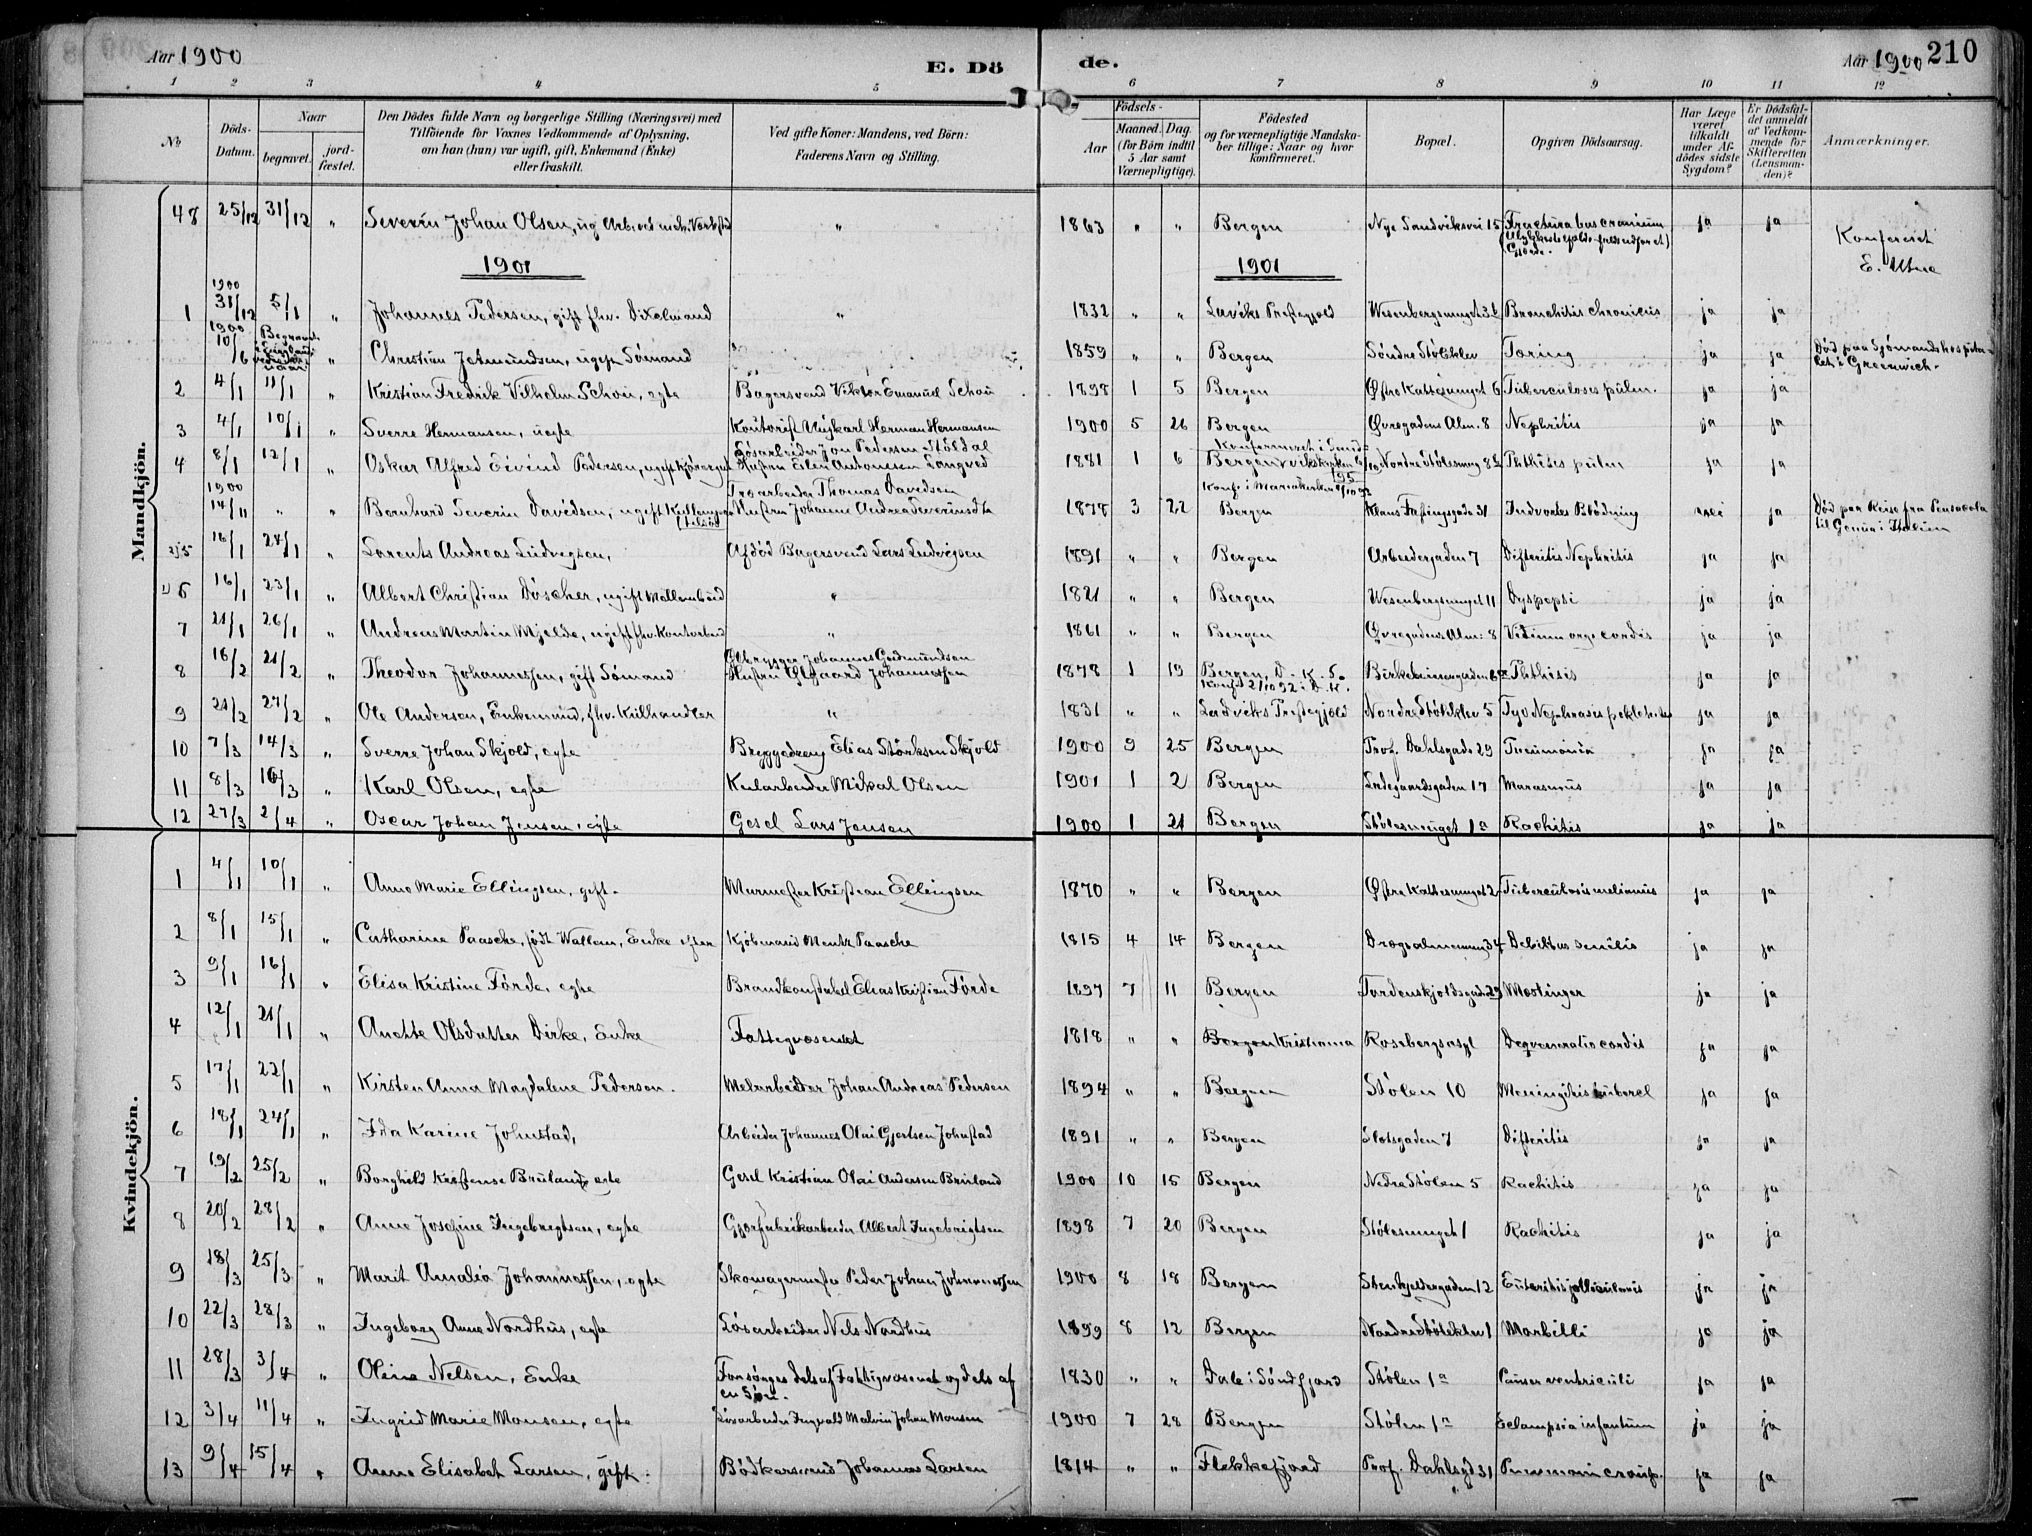 Aar 1900 E. Dö de. Aar 1900 210
1 2 3 4 5 6 7 8 9 10 11 12
No Döds-Datum. Naar begravet. jordfæstet. Den Dödes fulde Navn og borgerlige Stilling (Næringsvei) med Tilföiende for Voxnes Vedkommende af Oplysning, om han (hun) var ugift, gift, Enkemand (Enke) eller fraskilt. Ved gifte Koner: Mandens, ved Börn: Faderens Navn og Stilling. Födsels- Aar Maaned. Dag. (for Börn indtil 5 Aar samt Værnepligtige). Födested og for værnepligtige Mandskaber tillige: Naar og hvor konfirmeret. Bopæl. Opgiven Dödsaarsag. Har Læge været tilkaldt under Afdödes sidste Sygdom? Er Dödsfaldet anmeldt af Vedkommende for Skifteretten (Lensmanden)? Anmærkninger.
Mandkjön.
48 25/12 31/12 " Severin Johan Olsen, ug Arb. ved mek. Værksted " 1863 " " Bergen Nye Sandviksvei 15 Fractura bas cranium ja ja Konfereret E. Utne
1901 1901
1 1900 31/12 5/1 " Johannes Pedersen, gift fhv. Dixelmand " 1832 " " Laviks Prestegjeld Wesenbergsmuget 3b Bronchitis chronicus ja ja
1900 10/6 " Christian Jetmundsen, ugift Sömand " 1859 " " Bergen Söndre Stöleklev Tæring ja ja Död paa Sjömandshospitalet i Greenwich.
2 4/1 11/1 " Kristian Fredrik Vilhelm Schou, egte Bagersvend Viktor Emanuel Schou 1898 1 5 Bergen Östre Kattesmuget 6 Tuberculosis pulm. ja ja
3 4/1 10/1 " Sverre Hermansen, uegte Kontorist Herman Hermansen 1900 5 26 Bergen Övregadens Alm. 8 Nephritis ja ja
4 8/1 12/1 " Oskar Alfred Eivind Pedersen, ugift Lösarbeider Jon Pedersen Stöldal Hustru Elen Antonesen Langved 1881 1 6 Bergen Nordre Stölesmug 8b Phthisis pulm ja ja
1900 14/11 " " Bernhard Severin Davidsen, ugift Træarbeider Thomas Davidsen Hustru Johanne Andrea Severinsdtr 1878 3 22 Konf. i Mariakirken 2/10 92 Bergen Klaus Fastingsgade 31 Indvortes Blödning nei ja Död paa Reise fra Pensacola til Genua i Italien
5 16/1 24/1 " Lorents Andreas Ludvigsen, Afdöd Bagersvend Lars Ludvigsen 1891 " " Bergen Arbeidergaden 7 Difteritis Nephritis ja ja
6 16/1 23/1 " Albert Christian Döscher, ugift Mellembud " 1821 " " Bergen Wesenbergsmuget 11 Dyspepsi ja ja
7 21/1 26/1 " Andreas Martin Mjelde, ugift fhv. Kontorbud " 1861 " " Bergen Övregadens Alm: 8 Vitium org. cordis ja ja
8 16/2 21/2 " Theodor Johannessen, gift Sömand Ölbrygger Johannes Gudmundsen Hustru Ølegaard Johannessen 1878 1 19 Bergen, D. K. S. Konf 2/10 92 i D. K. Birkebeinergaden 6a Phthisis ja ja
9 21/2 27/2 " Ole Andersen, Enkemand, fhv. Kulhandler " 1831 " " Ladviks Prestegjeld Nordre Stöleklev 5 ja ja
10 7/3 14/3 " Sverre Johan Skjold, egte Bryggedreng Elias Störksen Skjold 1900 9 25 Bergen Prof. Dahlsgade 29 Pneumonia ja ja
11 8/3 16/3 " Karl Olsen, egte Kularbeider Mikal Olsen 1901 1 2 Bergen Ladegaardsgaden 17 Marasmus ja ja
12 27/3 2/4 " Oscar Johan Jensen, egte Gesel Lars Jensen 1900 1 21 Bergen Stölesmuget 1a Rachitis ja ja
Kvindekjön.
1 4/1 10/1 " Anne Marie Ellingsen, gift. Murmester Kristian Ellingsen 1870 " " Bergen Östre Kattesmuget 2 ja ja
2 8/1 15/1 " Catharine Paasche, födt Wallem, Enke efter Kjöbmand Mentz Paasche 1815 4 14 Bergen Dræggsalmenning 34 Debilitas senilis ja ja
3 9/1 16/1 " Elisa Kristine Förde, egte Brandkonstabel Elias Kristian Förde 1897 7 11 Bergen Tordenskjoldsgade 29 Mæslinger ja ja
4 12/1 21/1 " Anette Olsdatter Dirke, Enke Fattigvæsenet 1818 " " Bergen Kristiania Rosebergsasyl Degeneratio cordis ja ja
5 17/1 22/1 " Kirsten Anna Magdalene Pedersen. Melarbeider Johan Andreas Pedersen 1894 " " Bergen Stölen 10 Meningitis tubercl ja ja
6 18/1 24/1 " Ida Karine Johnstad, Arbeider Johannes Olai Gjertsen Johnstad 1891 " " Bergen Slotsgaden 7 Difteritis ja ja
7 19/2 25/2 " Borghild Kristense Bruland, egte Gesel Kristian Olai Andersen Bruland 1900 10 15 Bergen Nedre Stölen 5 Rachitis ja ja
8 20/2 28/2 " Anne Josefine Ingebregtsen, egte Gjærfabrikarbeider Albert Ingebrigtsen 1898 7 20 Bergen Stölesmuget 1 Rachitis ja ja
9 18/3 25/3 " Marit Amalia Johannessen, egte Skomagermester Peder Johan Johannessen 1900 8 18 Bergen Stenkjeldergaden 12 Enteritis follicularis ja ja
10 22/3 28/3 " Ingeborg Anne Nordhus, egte Lösarbeider Nels Nordhus 1899 8 12 Bergen Nordre Stöleklev 1 Morbilli ja ja
11 28/3 3/4 " Oline Nelsen, Enke Forsörges dels af Fattigvæsenet og dels af en Sön. 1830 " " Dale i Söndfjord Stölen 1a Cancer ventriculi ja ja
12 3/4 11/4 " Ingrid Marie Monsen, egte Lösarbeider Ingvald Malvin Johan Monsen 1900 7 28 Bergen Stölen 1a Eclampsia infantum ja ja
13 9/4 15/4 " Anne Elisabet Larsen, gift. Bödkersvend Johannes Larsen 1814 " " Flekkefjord Prof. Dahlsgd 31 Pneumoni croup. ja ja